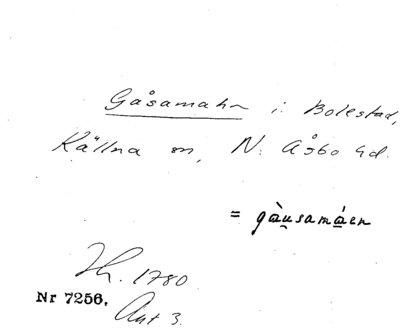 Gåsamahn i Bolestad,
Källna sn, N. Åsbo hd.
= gàu̯samáen
Lh. 1780
Nr 7256, Ant 3.